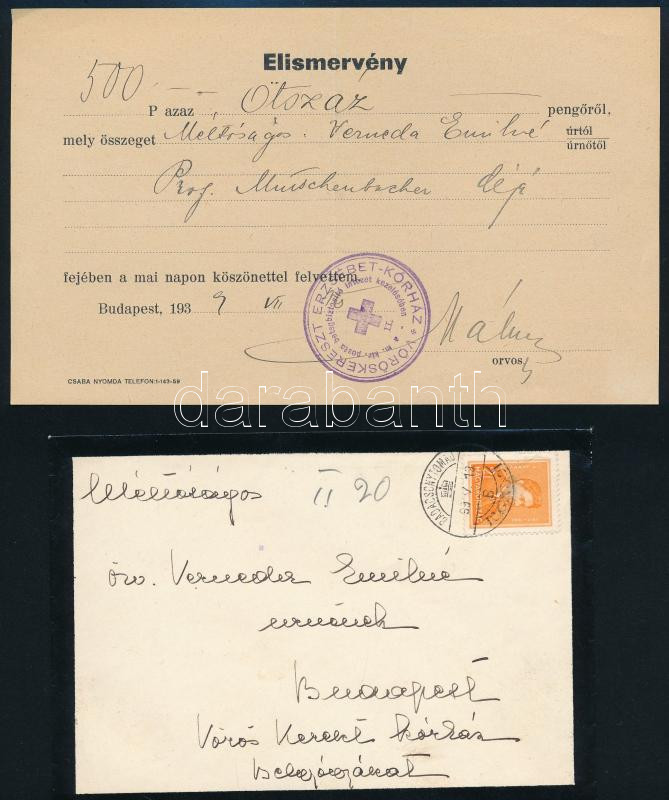 Elismervény
500
P azaz Ötszáz pengőről,
mely összeget Méltóságos Verneda Emilné úrtól
úrnőtől
Prof. Mutschenbacher
fejében a mai napon köszönettel felvettem.
Budapest, 1939 VII
VÖRÖSKERESZT ERZSÉBET-KÓRHÁZ
orvos
CSABA NYOMDA TELEFON:1-143-59
darabanth
Méltóságos II 20
BADACSONYTOMAJ
özv. Verneder Emilné
úrnőnek
Budapest
Vörös Kereszt kórház